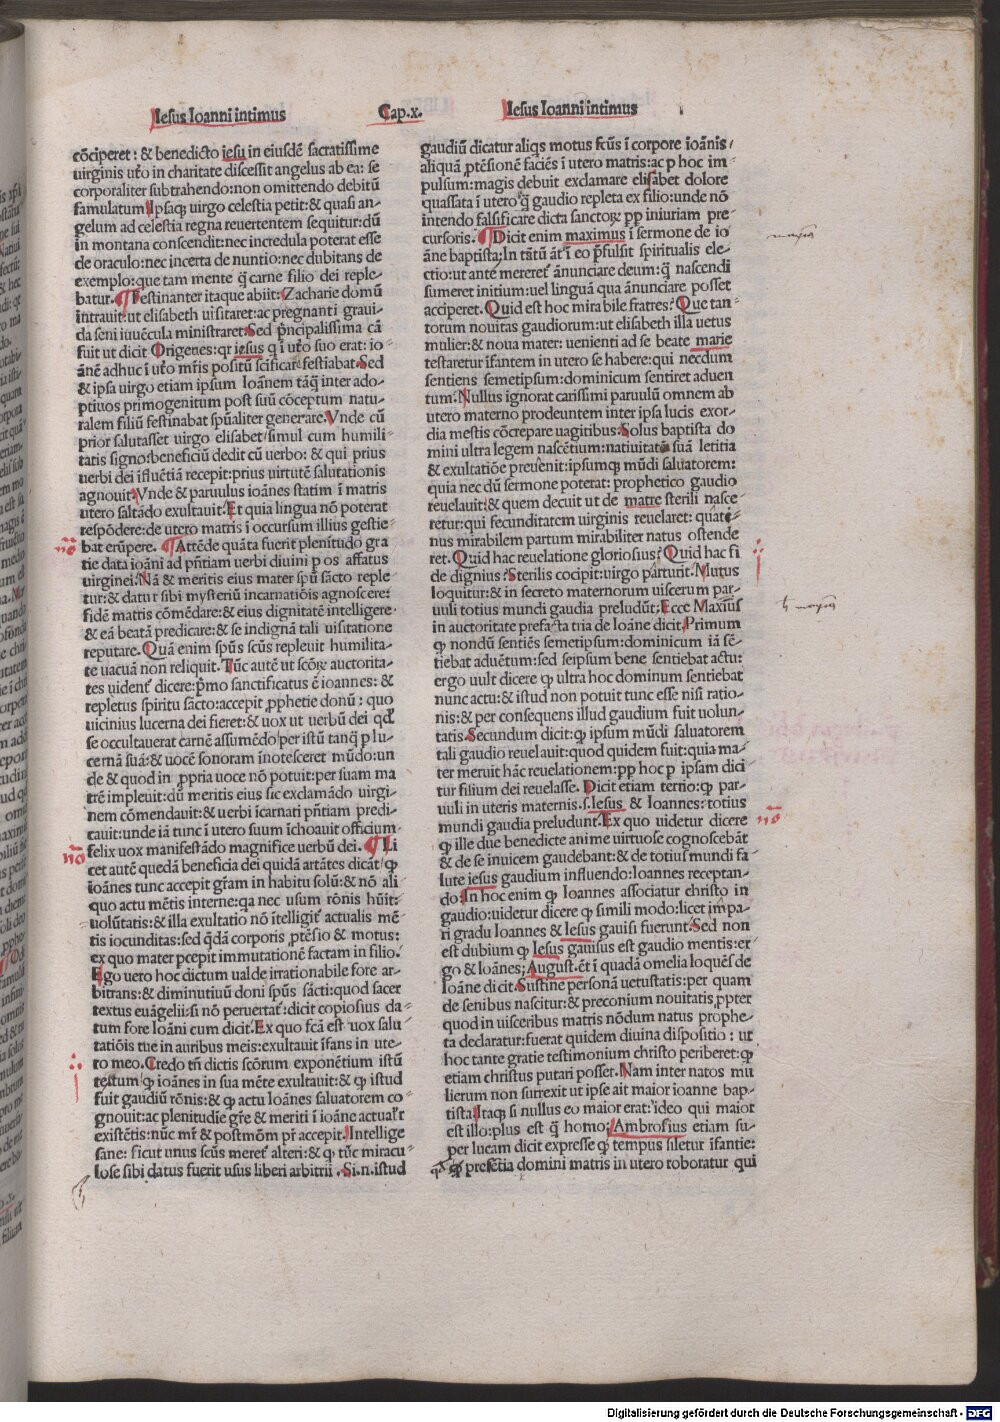 Iesus Ioanni intimus
Cap.x.
Iesus Ioanni intimus
cōciperet: & benedicto iesu in eiusdē sacratissime
uirginis utō in charitate discessit angelus ab ea: se
corporaliter subtrahendo: non omittendo debitū
famulatum Ipsaq; uirgo celestia petit: & quasi an-
gelum ad celestia regna reuertentem sequitur: dū
in montana conscendit: nec incredula poterat esse
de oraculo: nec incerta de nuntio: nec dubitans de
exemplo: que tam mente q̄ carne filio dei reple-
batur. ¶ Festinanter itaque abiit: Zacharie domū
intrauit: ut elisabeth uisitaret: ac pregnanti graui-
da seni iuuēcula ministraret: Sed p̄ncipalissima cā
fuit ut dicit Origenes: qr iesus q ī utō suo erat: io-
ānē adhuc ī utō mr̄is positū scificar festiabat: Sed
& ipsa uirgo etiam ipsum Ioānem tāq̄ inter ado-
ptiuos primogenitum post suū cōceptum natu-
ralem filiū festinabat spūaliter generare. Vnde cū
prior salutasset uirgo elisabet: simul cum humili-
tatis signo: beneficiū dedit cū uerbo: & qui prius
uerbi dei īfluētiā recepit: prius uirtutē salutationis
agnouit. Vnde & paruulus ioānes statim ī matris
utero saltādo exultauit. Et quia lingua nō poterat
respōdere: de utero matris ī occursum illius gestie-
bat erūpere. ¶ Attēde quāta fuerit plenitudo gra
tie data ioāni ad pn̄tiam uerbi diuini p os affatus
uirginei. Nā & meritis eius mater spū sācto reple
tur: & datur sibi mysteriū incarnatiōis agnoscere:
fidē matris cōmēdare: & eius dignitatē intelligere
& eā beatā predicare: & se indignā tali uisitatione
reputare. Quā enim spūs scūs repleuit humilita-
te uacuā non reliquit. Tūc autē ut scōr auctorita-
tes uident̄ dicere: p̄mo sanctificatus ē ioannes: &
repletus spiritu sācto: accepit ꝓphetie donū: quo
uicinius lucerna dei fieret: & uox ut uerbū dei qđ
se occultauerat carnē assumēdo per istū tanq̄ p lu-
cernā suā: & uocē sonoram īnotesceret mūdo: un
de & quod in ꝓpria uoce nō potuit: per suam ma
trē impleuit: dū meritis eius sic exclamādo uirgi-
nem cōmendauit: & uerbi īcarnati pn̄tiam predi-
cauit: unde iā tunc ī utero suum īchoauit officium
felix uox manifestādo magnifice uerbū dei. ¶ Li
cet autē quedā beneficia dei quidā artātes dicāt ꝙ
ioānes tunc accepit gr̄am in habitu solū: & nō ali-
quo actu mētis interne: qa nec usum rōnis hūit:
uolūtatis: & illa exultatio nō ītelligit̄ actualis mē-
tis iocunditas: sed q̄dā corporis ꝓtēsio & motus:
ex quo mater pcepit immutationē factam in filio.
Ego uero hoc dictum ualde irrationabile fore ar-
bitrans: & diminutiuū doni spūs sācti: quod sacer
textus euāgelii: si nō peruertat̄: dicit copiosius da-
tum fore Ioāni cum dicit. Ex quo fcā est uox salu
tatiōis tue in auribus meis: exultauit īfans in ute-
ro meo. Credo tn̄ dictis scōrum exponētium istū
testum ꝙ ioānes in sua mēte exultauit: & ꝙ istud
fuit gaudiū rōnis: & ꝙ actu Ioānes saluatorem co-
gnouit: ac plenitudīe gr̄e & meriti ī ioāne actualr̄
existētis: nūc mr̄ & postmōm pr̄ accepit. Intellige
sane: sicut unus scūs meret̄ alteri: & ꝙ tūc miracu-
lose sibi datus fuerit usus liberi arbitrii. Si.n.istud
gaudiū dicatur aliqs motus fcūs ī corpore ioānis
aliquā ꝓtēsionē faciēs ī utero matris: ac p hoc im-
pulsum: magis debuit exclamare elisabet dolore
quassata ī utero q̄ gaudio repleta ex filio: unde nō
intendo falsificare dicta sanctor pp iniuriam pre-
cursoris. ¶ Dicit enim maximus ī sermone de io
āne baptista; In tātū āt ī eo p̄sulsit spiritualis ele-
ctio: ut ante mereret̄ ānunciare deum: q̄ nascendi
sumeret initium: uel linguā qua ānunciare posset
acciperet. Quid est hoc mirabile fratres? Que tan-
torum nouitas gaudiorum: ut elisabeth illa uetus
mulier: & noua mater: uenienti ad se beate marie
testaretur īfantem in utero se habere: qui necdum
sentiens semetipsum: dominicum sentiret aduen
tum. Nullus ignorat carissimi paruulū omnem ab
utero materno prodeuntem inter ipsa lucis exor-
dia mestis cōcrepare uagitibus: Solus baptista do
mini ultra legem nascētium: natiuitatē suā letitia
& exultatiōe preuenit: ipsumq; mūdi saluatorem:
quia nec dū sermone poterat: prophetico gaudio
reuelauit: & quem decuit ut de matre sterili nasce-
retur: qui fecunditatem uirginis reuelaret: quate-
nus mirabilem partum mirabiliter natus ostende
ret. Quid hac reuelatione gloriosius? Quid hac fi
de dignius? Sterilis cōcipit: uirgo parturit. Mutus
loquitur: & in secreto maternorum uiscerum par-
uuli totius mundi gaudia preludūt; Ecce Maxiūs
in auctoritate prefacta tria de Ioāne dicit. Primum
ꝙ nondū sentiēs semetipsum: dominicum iā sē-
tiebat aduētum: sed seipsum bene sentiebat actu:
ergo uult dicere ꝙ ultra hoc dominum sentiebat
nunc actu: & istud non potuit tunc esse nisi ratio-
nis: & per consequens illud gaudium fuit uolun-
tatis. Secundum dicit: ꝙ ipsum mūdi saluatorem
tali gaudio reuelauit: quod quidem fuit: quia ma-
ter meruit hāc reuelationem: pp hoc p ipsam dici
tur filium dei reuelasse. Dicit etiam tertio: ꝙ par-
uuli in uteris maternis.s.Iesus & Ioannes: totius
mundi gaudia preludunt. Ex quo uidetur dicere
ꝙ ille due benedicte anime uirtuose cognoscebāt
& de se inuicem gaudebant: & de totius mundi sa-
lute iesus gaudium influendo: Ioannes receptan-
do: In hoc enim ꝙ Ioannes associatur christo in
gaudio: uidetur dicere ꝙ simili modo: licet impa-
ri gradu Ioannes & Iesus gauisi fuerunt. Sed non
est dubium ꝙ Iesus gauisus est gaudio mentis: er-
go & Ioānes; August. ēt ī quadā omelia loquēs de
Ioāne dicit. Sustine personā uetustatis: per quam
de senibus nascitur: & preconium nouitatis ꝓpter
quod in uisceribus matris nōdum natus prophe-
ta declaratur: fuerat quidem diuina dispositio: ut
hoc tante gratie testimonium christo periberet: ꝙ
etiam christus putari posset. Nam inter natos mu
lierum non surrexit ut ipse ait maior ioanne bap-
tista. Itaq; si nullus eo maior erat: ideo qui maior
est illo: plus est q̄ homo; Ambrosius etiam su-
per lucam dicit expresse ꝙ tempus siletur īfantie:
ꝙ presētia domini matris in utero roboratur qui
nō
nō
nō
Digitalisierung gefördert durch die Deutsche Forschungsgemeinschaft - DFG